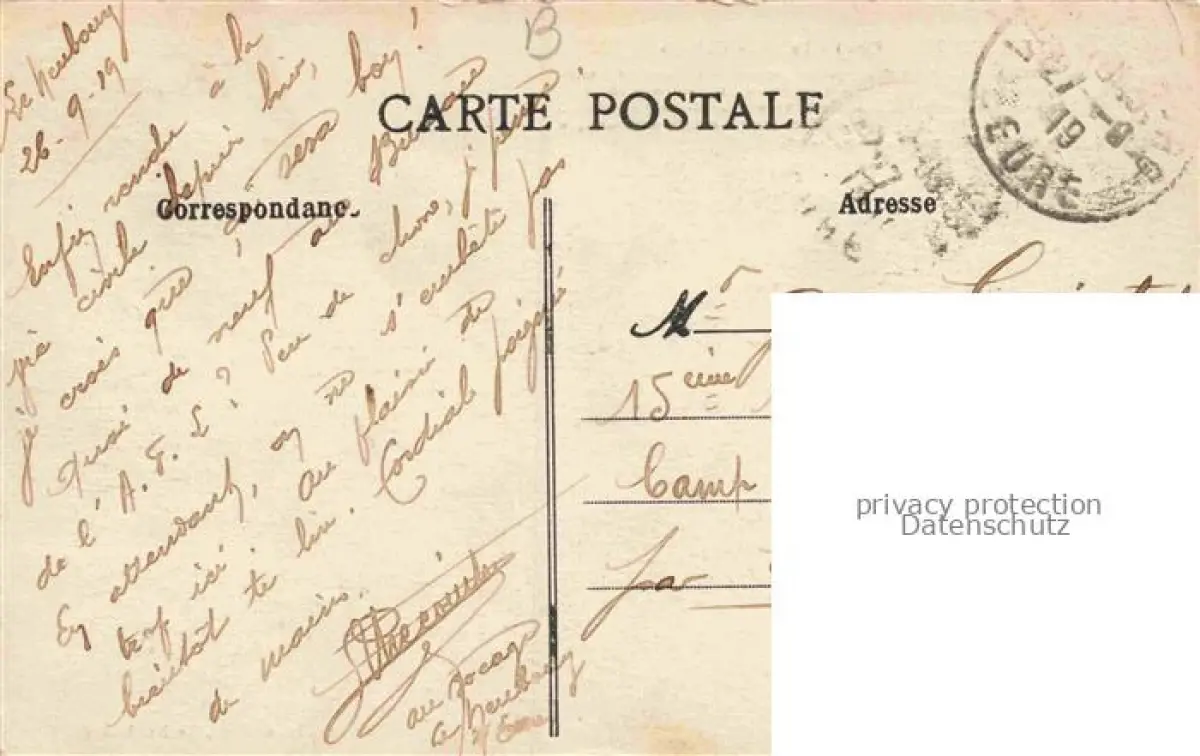 B
CARTE POSTALE
Correspondance
Adresse
Le Neubourg
26-9-19
Enfin rendu à la
vie civile depuis hier,
je crois que ça sera bon!
Quoi de neuf au Bureau
de l'A.F.L? Peu de chose, je pense
En attendant, on ne s'embête pas
trop ici. Au plaisir de
bientôt te lire. Cordiale poignée
de mains.
au
Le Neubourg
Eure
19
EURE
Mr
15ème
Camp
par
privacy protection
Datenschutz